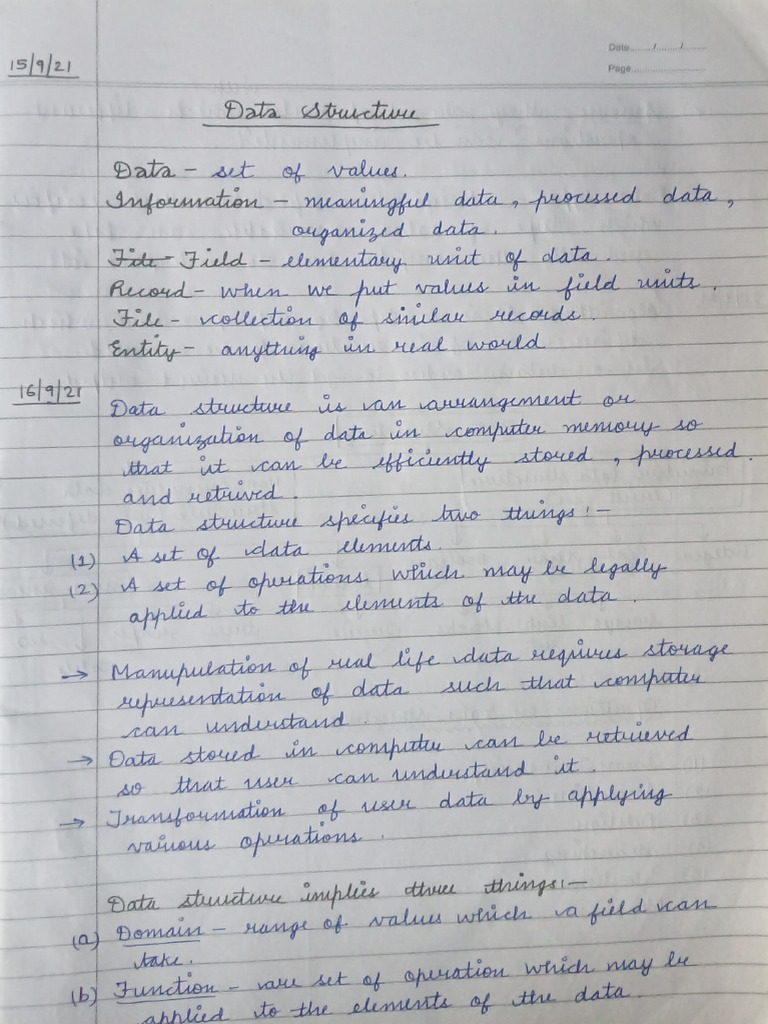 Date......../......../........
Page.......................
15/9/21
Data Structure
Data - set of values.
Information - meaningful data, processed data,
organized data.
File- Field - elementary unit of data.
Record - when we put values in field units.
File - collection of similar records.
Entity - anything in real world
16/9/21
Data structure is an arrangement or
organization of data in computer memory so
that it can be efficiently stored, processed.
and retrived.
Data structure specifies two things :-
(1) A set of data elements.
(2) A set of operations which may be legally
applied to the elements of the data.
→ Manupulation of real life data requires storage
representation of data such that computer
can understand
→ Data stored in computer can be retrieved
so that user can understand it.
→ Transformation of user data by applying
various operations.
Data structure implies three things:-
(a) Domain - range of values which a field can
take.
(b) Function - are set of operation which may be
applied to the elements of the data.